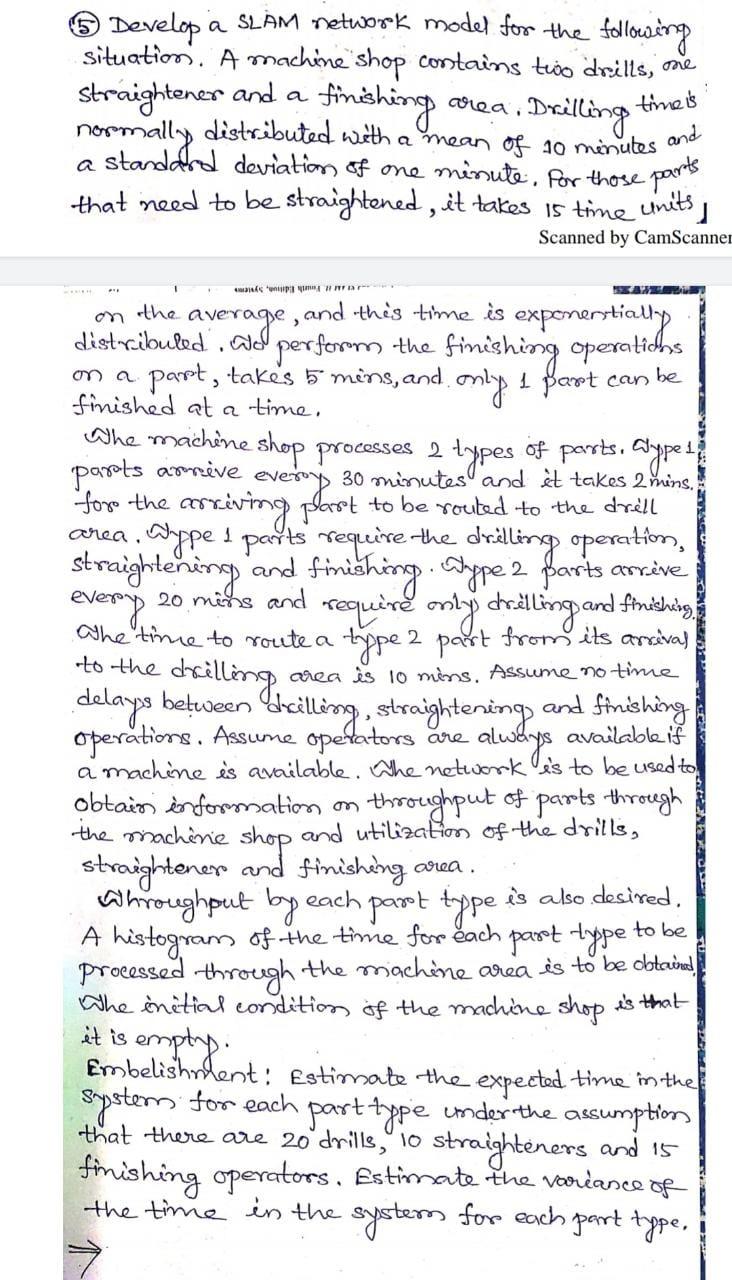 ⑤ Develop a SLAM network model for the following
situation. A machine shop contains two drills, one
straightener and a finishing area. Drilling time is
normally distributed with a mean of 10 minutes and
a standard deviation of one minute. For those parts
that need to be straightened, it takes 15 time units,
Scanned by CamScanner
on the average, and this time is exponentially
distributed. To perform the finishing operations
on a part, takes 5 mins, and only 1 part can be
finished at a time.
The machine shop processes 2 types of parts. Type 1
parts arrive every 30 minutes and it takes 2 mins.
for the arriving part to be routed to the drill
area. Type 1 parts require the drilling operation,
straightening and finishing. Type 2 parts arrive
every 20 mins and require only drilling and finishing.
The time to route a type 2 part from its arrival
to the drilling area is 10 mins. Assume no time
delays between drilling, straightening and finishing
operations. Assume operators are always available if
a machine is available. The network is to be used to
obtain information on throughput of parts through
the machine shop and utilization of the drills,
straightener and finishing area.
Throughput by each part type is also desired.
A histogram of the time for each part type to be
processed through the machine area is to be obtained.
The initial condition of the machine shop is that
it is empty.
Embelishment: Estimate the expected time in the
system for each part type under the assumption
that there are 20 drills, 10 straighteners and 15
finishing operators. Estimate the variance of
the time in the system for each part type.
⇒